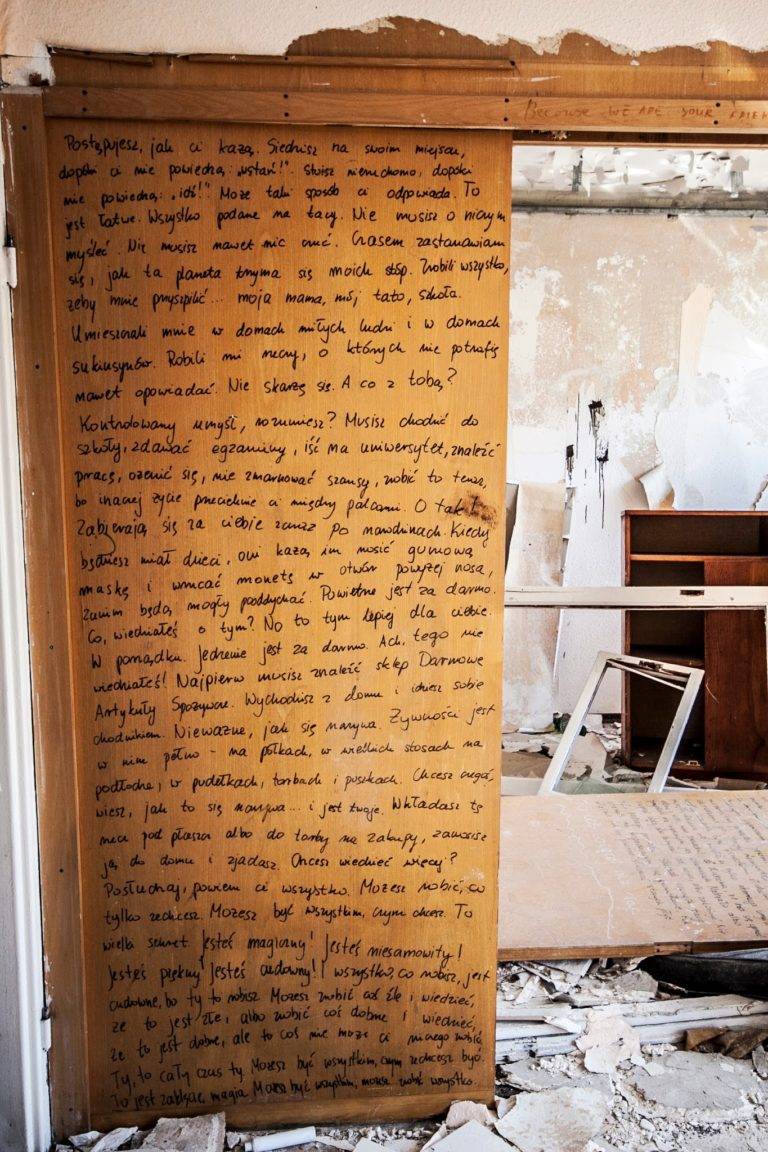 Because WE ARE YOUR
Postępujesz, jak ci każą. Siedzisz na swoim miejscu,
dopóki ci nie powiedzą: „wstań!". Stoisz nieruchomo, dopóki
nie powiedzą: „idź!". Może taki sposób ci odpowiada. To
jest łatwe. Wszystko podane na tacy. Nie musisz o niczym
myśleć. Nie musisz nawet nic czuć. Czasem zastanawiam
się, jak ta planeta trzyma się moich stóp. Zrobili wszystko,
żeby mnie przyszpilić... moja mama, mój tato, szkoła.
Umieszczali mnie w domach miłych ludzi i w domach
sukinsynów. Robili mi rzeczy, o których nie potrafię
nawet opowiadać. Nie skarżę się. A co z tobą?
Kontrolowany umysł, rozumiesz? Musisz chodzić do
szkoły, zdawać egzaminy, iść na uniwersytet, znaleźć
pracę, ożenić się, nie zmarnować szansy, zrobić to teraz,
bo inaczej życie przecieknie ci między palcami. O tak
Zabierają się za ciebie zaraz po narodzinach. Kiedy
będziesz miał dzieci, oni każą im nosić gumową
maskę i wrzucać monetę w otwór powyżej nosa,
zanim będą mogły pooddychać. Powietrze jest za darmo.
Co, wiedziałeś o tym? No to tym lepiej dla ciebie.
W porządku. Jedzenie jest za darmo. Ach, tego nie
wiedziałeś! Najpierw musisz znaleźć sklep Darmowe
Artykuły Spożywcze. Wychodzisz z domu i idziesz sobie
chodnikiem. Nieważne, jak się nazywa. Żywności jest
w nim pełno - na półkach, w wielkich stosach na
podłodze, w pudełkach, torbach i puszkach. Chcesz czegoś,
wiesz, jak to się nazywa... i jest twoje. Wkładasz tę
rzecz pod płaszcz albo do torby na zakupy, zanosisz
ją do domu i zjadasz. Chcesz wiedzieć więcej?
Posłuchaj, powiem ci wszystko. Możesz robić, co
tylko zechcesz. Możesz być wszystkim, czym chcesz. To
wielki sekret. Jesteś magiczny! Jesteś niesamowity!
Jesteś piękny! Jesteś cudowny! I wszystko, co robisz, jest
cudowne, bo ty to robisz. Możesz zrobić coś źle i wiedzieć,
że to jest złe, albo zrobić coś dobrze i wiedzieć,
że to jest dobre, ale to coś nie może ci niczego zrobić.
Ty, to cały czas ty. Możesz być wszystkim, czym zechcesz być.
To jest zaklęcie, magia. Możesz być wszystkim, możesz zrobić wszystko.